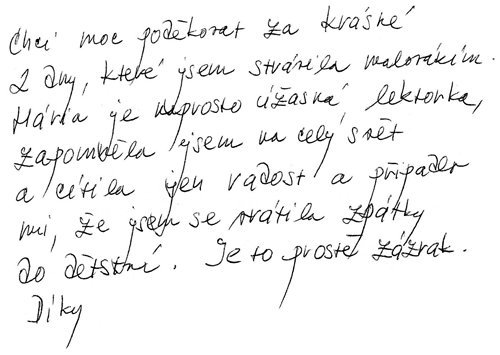 Chci moc poděkovat za krásné
2 dny, které jsem strávila malováním.
Mária je naprosto úžasná lektorka,
zapomněla jsem na celý svět
a cítila jen radost a připadlo
mi, že jsem se vrátila zpátky
do dětství. Je to prostě zázrak.
Díky